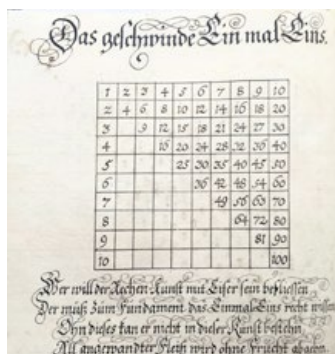 Das geschwinde Ein mal Eins.
1 2 3 4 5 6 7 8 9 10
2 4 6 8 10 12 14 16 18 20
3 9 12 15 18 21 24 27 30
4 16 20 24 28 32 36 40
5 25 30 35 40 45 50
6 36 42 48 54 60
7 49 56 63 70
8 64 72 80
9 81 90
10 100
Wer will der Rechen Kunst mit Eifer sein befliessen
Der muß zum Fundament das Einmal Eins recht wissen
Ohn dieses kan er nicht in dieser Kunst bestehn
All angewandter Fleiß wird ohne Frucht abgehn